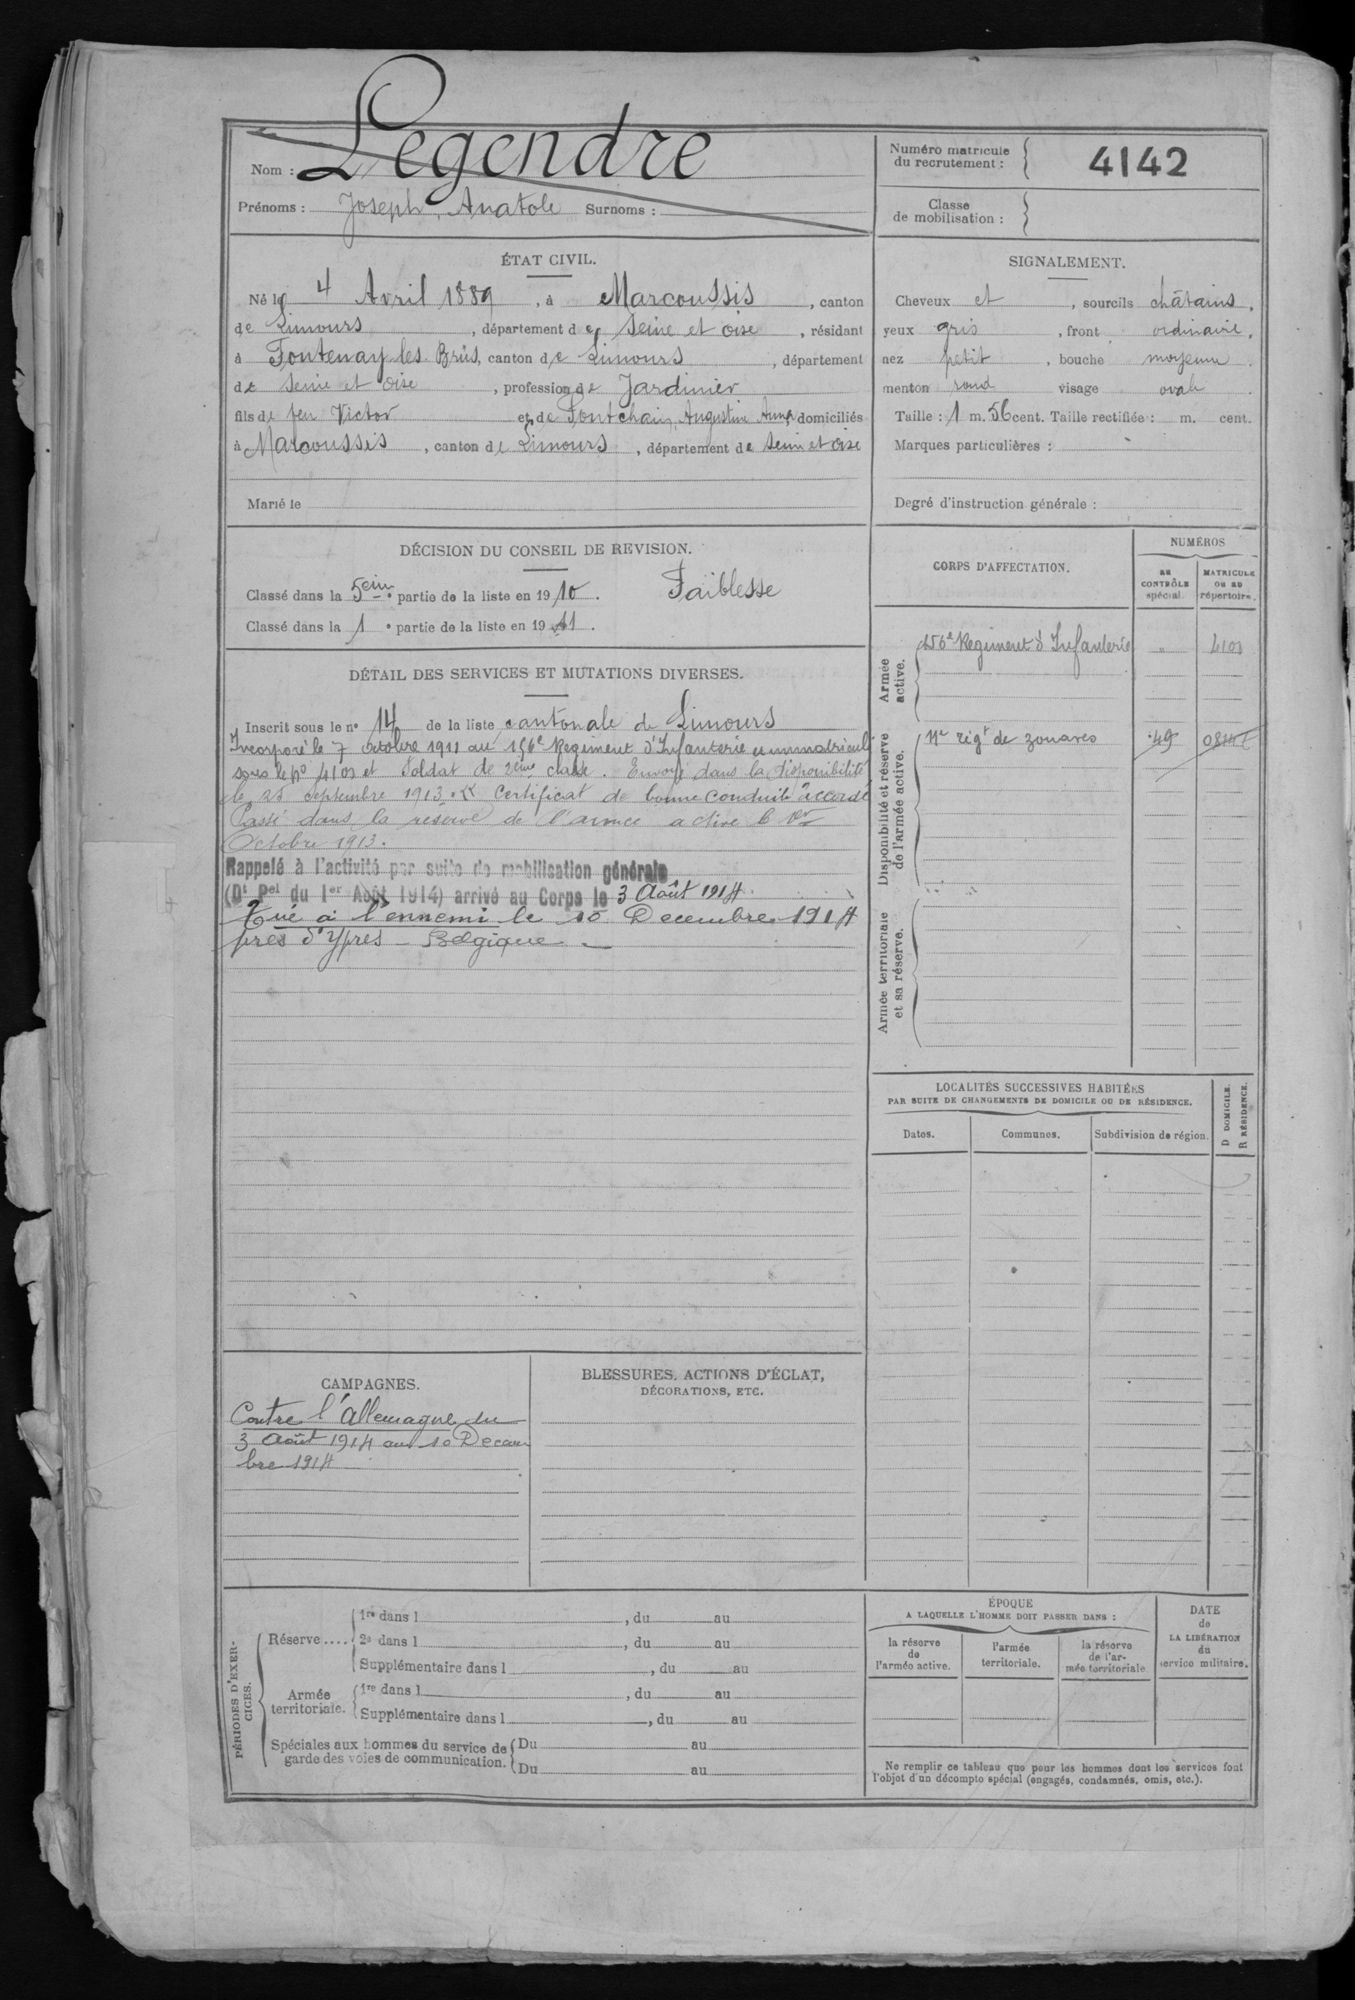 Nom : Legendre
Prénoms : Joseph, Anatole Surnoms :
Numéro matricule
du recrutement : 4142
Classe
de mobilisation :
ÉTAT CIVIL.
Né le 4 Avril 1889, à Marcoussis, canton
de Limours, département de Seine et Oise, résidant
à Fontenay les Briis, canton de Limours, département
de Seine et Oise, profession de Jardinier
fils de feu Victor et de Augustine Anna domiciliés
à Marcoussis, canton de Limours, département de Seine et Oise
Marié le
SIGNALEMENT.
Cheveux et , sourcils châtains,
yeux gris, front ordinaire,
nez petit, bouche moyenne.
menton rond visage ovale
Taille : 1 m. 56 cent. Taille rectifiée : m. cent.
Marques particulières :
Degré d'instruction générale :
DÉCISION DU CONSEIL DE REVISION.
Classé dans la 5eme partie de la liste en 1910. Faiblesse
Classé dans la 1e partie de la liste en 1911.
DÉTAIL DES SERVICES ET MUTATIONS DIVERSES.
Inscrit sous le n° 14 de la liste cantonale de Limours
Incorporé le 7 octobre 1911 au 156e Régiment d'Infanterie immatriculé
sous le no 4101 et Soldat de 2eme classe. Envoyé dans la disponibilité
le 25 septembre 1913. Certificat de bonne conduite accordé
Passé dans la réserve de l'armée active le 1er
Octobre 1913.
Rappelé à l'activité par suite de mobilisation générale
(Dt Pel du 1er Août 1914) arrivé au Corps le 3 Août 1914.
Tué à l'ennemi le 10 Decembre 1914
près d'Ypres – Belgique –
CORPS D'AFFECTATION.
NUMÉROS
AU
CONTRÔLE
spécial.
MATRICULE
OU AU
répertoire.
Armée
active.
156e Régiment d'Infanterie " 4101
Disponibilité et réserve
de l'armée active.
régt de zouaves 49
Armée territoriale
et sa réserve.
LOCALITÉS SUCCESSIVES HABITÉES
PAR SUITE DE CHANGEMENTS DE DOMICILE OU DE RÉSIDENCE.
Dates.
Communes.
Subdivision de région.
D DOMICILE.
R RÉSIDENCE.
CAMPAGNES.
Contre l'Allemagne du
3 Août 1914 au 10 Decem
bre 1914
BLESSURES, ACTIONS D'ÉCLAT,
DÉCORATIONS, ETC.
PÉRIODES D'EXER-
CICES.
Réserve.... 1re dans l , du au
2e dans l , du au
Supplémentaire dans l , du au
Armée
territoriale. 1re dans l , du au
Supplémentaire dans l , du au
Spéciales aux hommes du service de
garde des voies de communication. Du au
Du au
ÉPOQUE
A LAQUELLE L'HOMME DOIT PASSER DANS :
la réserve
de
l'armée active.
l'armée
territoriale.
la réserve
de l'ar-
mée territoriale
DATE
de
LA LIBÉRATION
du
service militaire.
Ne remplir ce tableau que pour les hommes dont les services font
l'objet d'un décompte spécial (engagés, condamnés, omis, etc.).